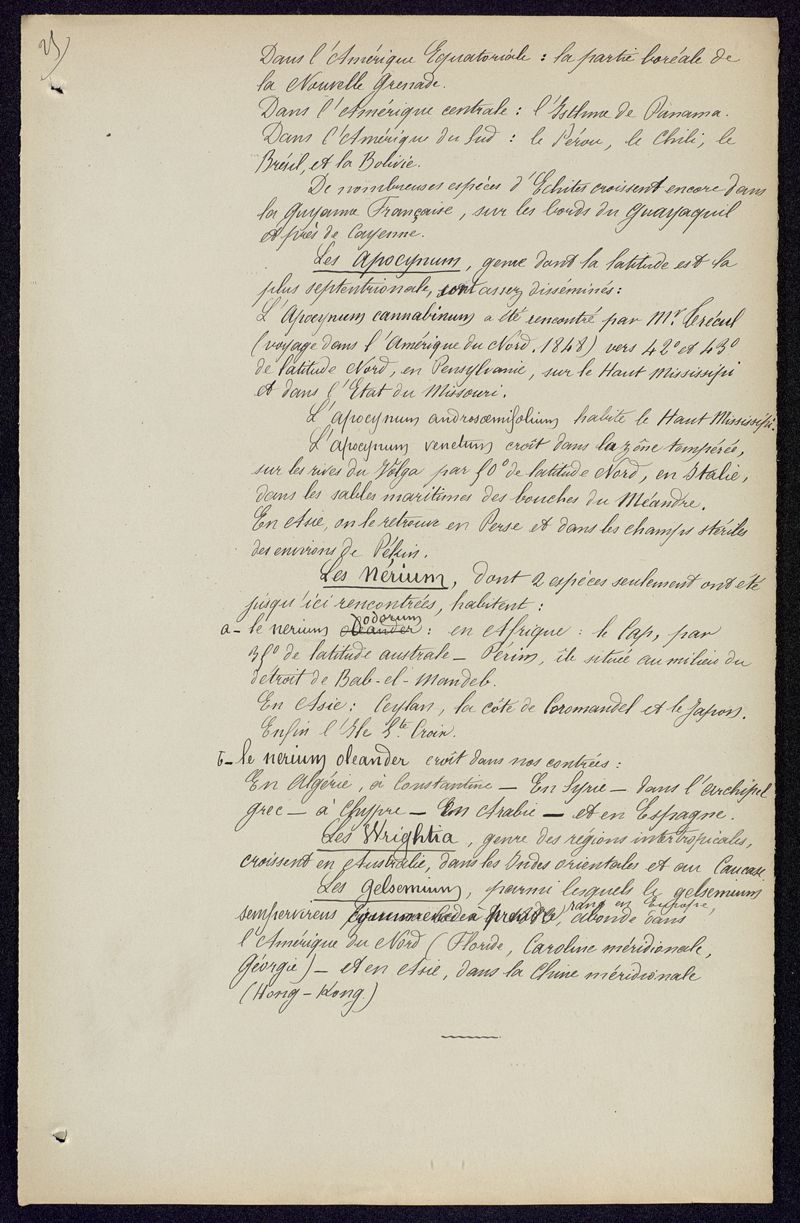 Dans l'Amérique Equatoriale : la partie boréale de
la Nouvelle Grenade.
Dans l'Amérique centrale : l'Isthme de Panama.
Dans l'Amérique du Sud : le Pérou, le Chili, le
Brésil, et la Bolivie.
De nombreuses espèces d'Echites croissent encore dans
la Guyane Française, sur les bords du Guayaquil
et près de Cayenne.
Les Apocynum, genre dont la latitude est la
plus septentrionale, sont assez disséminés :
L'Apocynum cannabinum a été rencontré par Mr. Trécul
(voyage dans l'Amérique du Nord, 1848) vers 42° et 43°
de latitude Nord, en Pensylvanie, sur le Haut Mississipi
et dans l'Etat du Missouri.
L'apocynum androsœmifolium habite le Haut Mississipi.
L'apocynum venetum croît dans la zône tempérée,
sur les rives du Volga par 50° de latitude Nord, en Italie,
dans les sables maritimes des bouches du Méandre.
En Asie, on le retrouve en Perse et dans les champs stériles
des environs de Pékin.
Les Nérium, dont 2 espèces seulement ont été
jusqu'ici rencontrées, habitent :
a- le nerium oleander odorum : en Afrique : le Cap, par
35° de latitude australe – Périm, île située au milieu du
détroit de Bab-el-Mandeb.
En Asie : Ceylan, la côte de Coromandel et le Japon.
Enfin l'Ile Ste Croix.
b- le nerium oleander croît dans nos contrées :
En Algérie, à Constantine – En Syrie – dans l'archipel
grec – à Chypre – En Arabie – et en Espagne.
Les Wrightia, genre des régions intertropicales,
croissent en Australie, dans les Indes orientales et au Caucase.
Les Gelsemium, parmi lesquels le gelsemium
sempervirens rare en Europe,
abonde dans
l'Amérique du Nord (Floride, Caroline méridionale,
Géorgie) – et en Asie, dans la Chine méridionale
(Hong-Kong.)